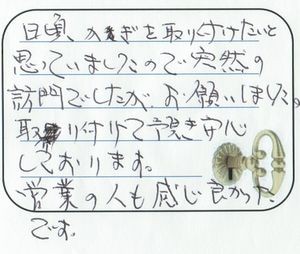 日頃 かぎを取り付けたいと
思っていましたので突然の
訪門でしたが、お願いしました。
取り付けて頂き安心
しております。
営業の人も感じ良かった
です。